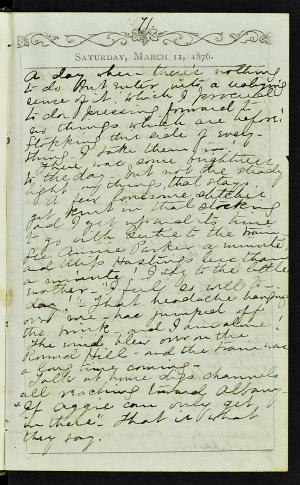 71
SATURDAY, MARCH 11, 1876.
A day when there's nothing
to do but enter into a realizing
sense of it. Which I proceed
to do, pressing forward to
things which are before:
stopping this side of every-
thing I take them in!
There was some brightness
in the day but not the steady
light of things that stays.
A few lonesome stitches
get knit in and stocking
and I get up and it's time
to go with Autie to the train.
See Annie Parker a minute,
and Miss Hastings less than
a minute! I say to the little
mother "I feel so will to-
day!" That headache hanging
over me has jumped off
the brink and I am alive!
The wind blew over on the
Round Hill and the train was
a long time coming.
Talk at home digs channels
all reaching toward Albany.
"If Aggie can only get
in there". That is what
they say.